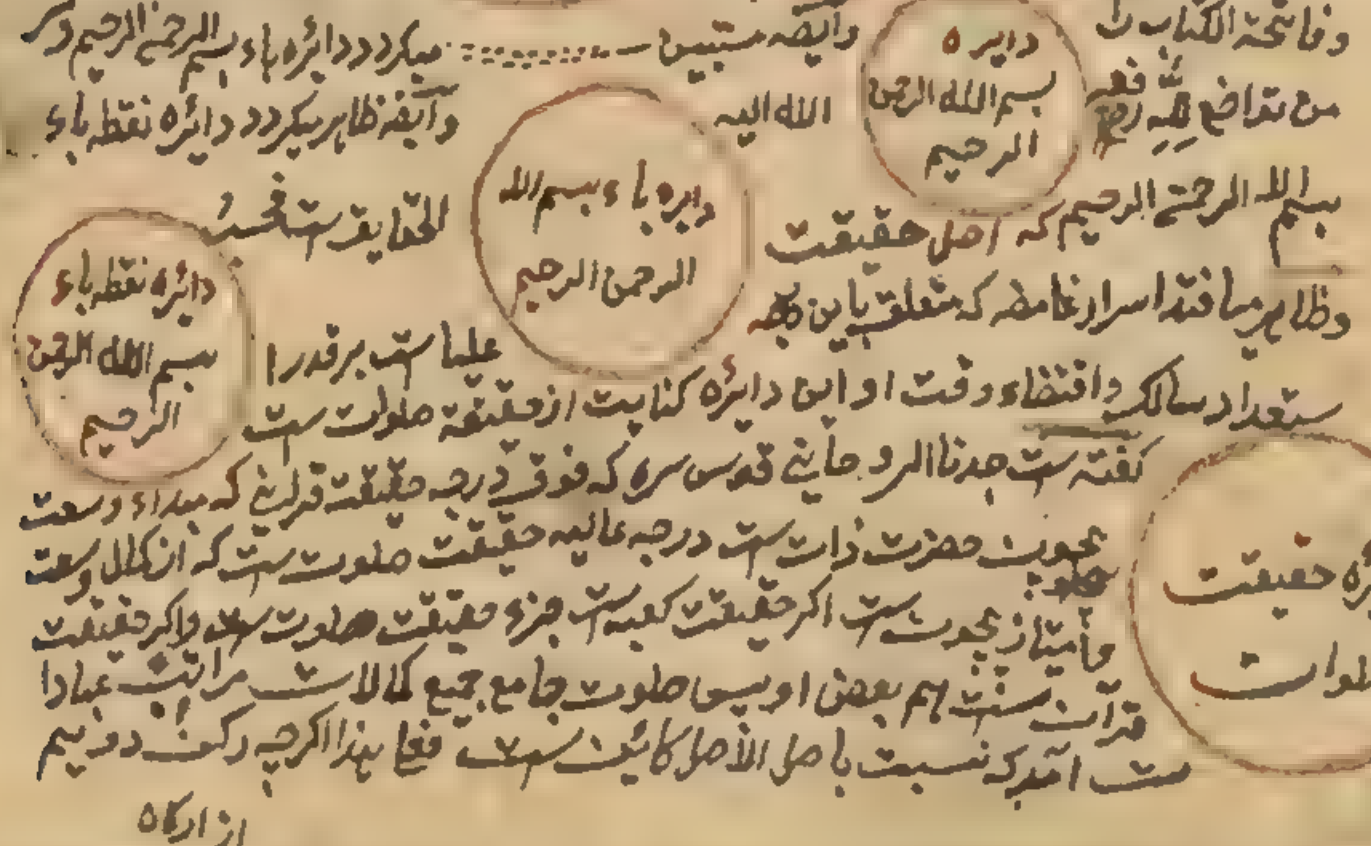 وفاتحة الكتاب را
دایره
بسم الله الرحمن
الرحیم
وآنچه
میکردد دائرهٔ باء بسم الرحمن الرحیم
من تواضع لله رفعه
الله الیه
وآنچه ظاهر میکردد دائره نقطه باء
دایره باء بسم الله
الرحمن الرحیم
بسم الله الرحمن الرحیم که اصل حقیقت
الحقایق ست
دائره نقطه باء
بسم الله الرحمن
الرحیم
وظاهر میافتد اسرار غامضه که متعلق باین
علیا ست برقدر ا
ستعداد سالک واقتضاء وقت او این دایرهٔ کنایت از حقیقة صلوت ست
کفته ست جدنا الروحانی قدس سره که فوق درجه حقیقت قرانی که مبداء وسعت
بیچون حضرت ذات ست درجه عالیه حقیقت صلوت ست که از کمال وسعت
وامتیاز بیچون ست اکر حقیقت کعبه ست جزء حقیقت صلوت ست واکر حقیقت
قرآن ست هم بعض او پس صلوت جامع جمیع کمالات مراتب عبادا
ت آمد که نسبت با صل الأصل کائن ست فعلی هذا اکرچه رکن دویم
دائره حقیقت
صلوات
از ارکان